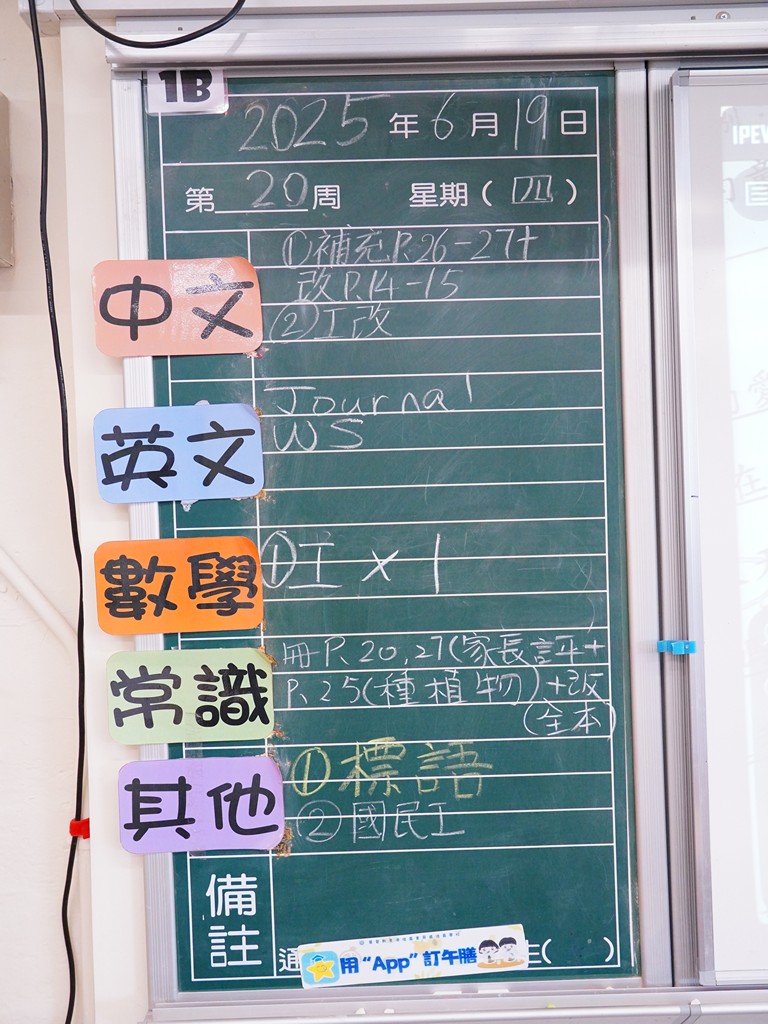 1B
2025年6月19日
第20周 星期(四)
中文
①補充P.26-27+
改P.14-15
②工改
英文
Journal
WS
數學
①工×1
常識
冊P.20,27(家長評+
P.25(種植物)+改
(全本)
其他
①標語
②國民工
備註
通
用“App”訂午膳
生( )